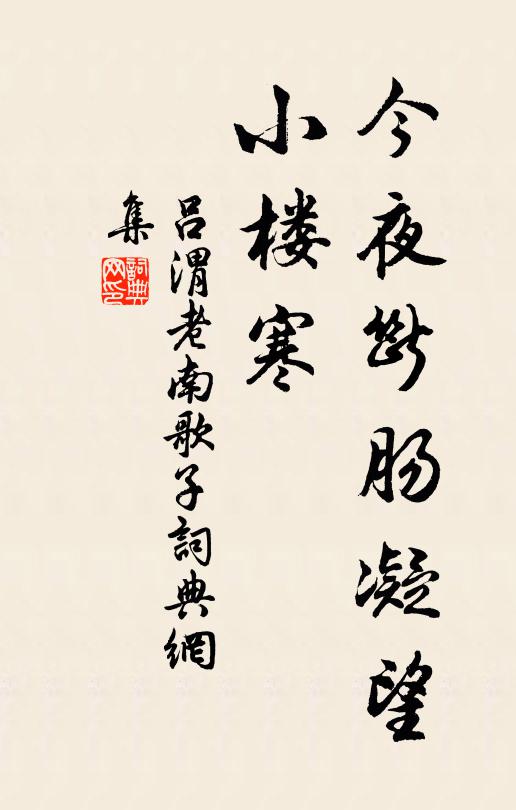 今夜斷肠凝望
小楼寒
吕渭老南歌子詞典網
集
詞典
网印